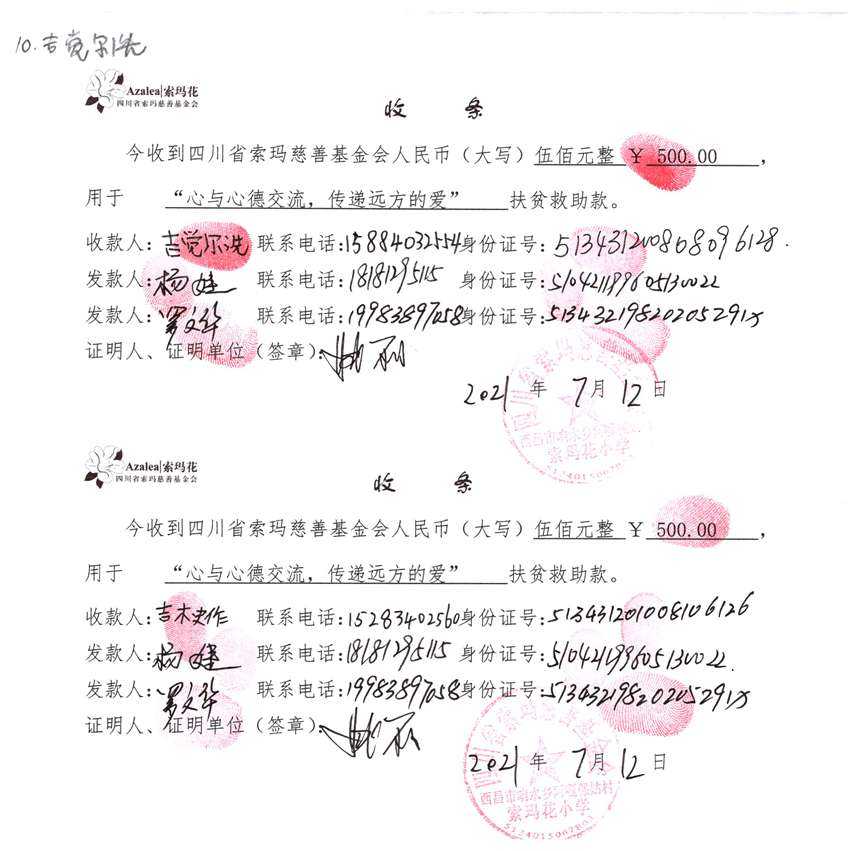 10.吉觉尔洗
Azalea|索玛花
四川省索玛慈善基金会
收 条
今收到四川省索玛慈善基金会人民币（大写）伍佰元整 ￥ 500.00 ，
用于 “心与心德交流，传递远方的爱” 扶贫救助款。
收款人：吉觉尔洗 联系电话：15884032554 身份证号：513431200808096128.
发款人：杨娃 联系电话：18181295115 身份证号：510421199605130022
发款人：罗文华 联系电话：19983897058 身份证号：51343219820205291X
证明人、证明单位（签章）：
2021 年 7月 12 日
西昌市响水乡
索玛花小学
Azalea|索玛花
四川省索玛慈善基金会
收 条
今收到四川省索玛慈善基金会人民币（大写）伍佰元整 ￥ 500.00 ，
用于 “心与心德交流，传递远方的爱” 扶贫救助款。
收款人：吉木史作 联系电话：15283402560 身份证号：513431201008106126
发款人：杨娃 联系电话：18181295115 身份证号：510421199605130022.
发款人：罗文华 联系电话：19983897058 身份证号：51343219820205291X
证明人、证明单位（签章）：
2021 年 7月 12 日
西昌市响水乡
索玛花小学